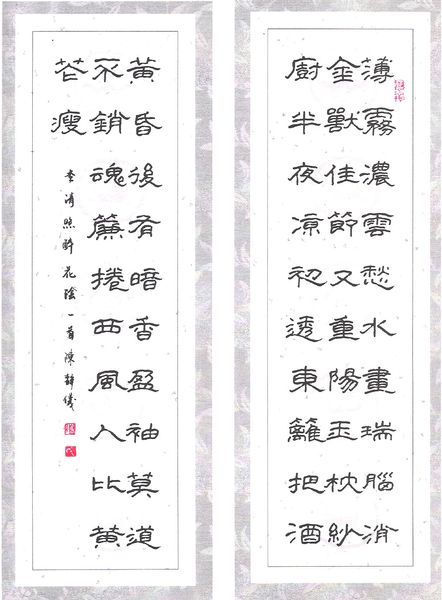 薄霧濃雲愁永晝瑞腦消
金獸佳節又重陽玉枕紗
廚半夜凉初透東籬把酒
黃昏後有暗香盈袖莫道
不銷魂簾捲西風人比黃
花瘦
李清照醉花陰一首陳靜儀